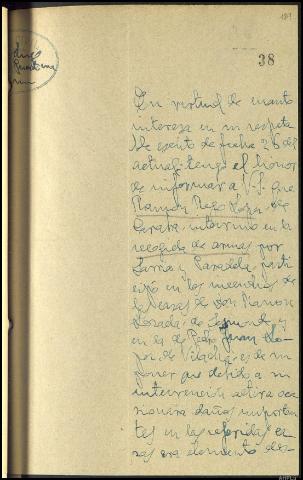 38
En virtud de cuanto
interesa en su respeta
ble escrito de fecha 26 del
actual tengo el honor
de informar a V.S. que
Ramón López, de
intervino en la
recogida de armas por
Sarria y Paradela, parti
cipó en los incendios de
la casa de Don Ramón
Losada, de y
en la de Pedro Juan Ló
pez, de Vilachá, es de su
poner que debido a su
intervención activa oca
sionara daños importan
tes en las referidas ca
sas era elemento des